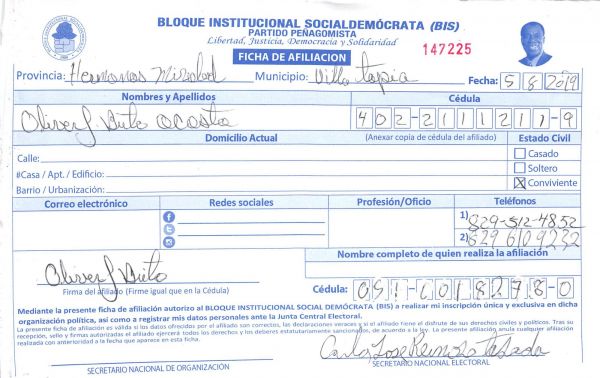 BLOQUE INSTITUCIONAL SOCIALDEMÓCRATA (BIS)
PARTIDO PEÑAGOMISTA
Libertad, Justicia, Democracia y Solidaridad
FICHA DE AFILIACION
147225
Provincia: Hermanas Mirabal Municipio: Villa tapia Fecha: 5 8 2019
Nombres y Apellidos Cédula
Oliver J Brito acosta 402-2111211-9
Domicilio Actual (Anexar copia de cédula del afiliado) Estado Civil
Calle: Casado
#Casa / Apt. / Edificio: Soltero
Barrio / Urbanización: X Conviviente
Correo electrónico Redes sociales Profesión/Oficio Teléfonos
1) 829-512-4852
2) 829 610 9232
Nombre completo de quien realiza la afiliación
Oliver J Brito
Firma del afiliado (Firme igual que en la Cédula) Cédula: 051-0018278-0
Mediante la presente ficha de afiliación autorizo al BLOQUE INSTITUCIONAL SOCIAL DEMÓCRATA (BIS) a realizar mi inscripción única y exclusiva en dicha
organización política, así como a registrar mis datos personales ante la Junta Central Electoral.
La presente ficha de afiliación es válida si los datos ofrecidos por el afiliado son correctos, las declaraciones veraces y si el titular tiene el disfrute de sus derechos civiles y políticos. Tras su
recepción, sello y firmas autorizadas el afiliado ejercerá todos los derechos y los deberes estatutariamente sancionados, de acuerdo a la ley. La presente afiliación anula cualquier afiliación
realizada con anterioridad a la fecha que aparece en esta ficha.
Carlos Jose
SECRETARIO NACIONAL DE ORGANIZACIÓN SECRETARIO NACIONAL ELECTORAL